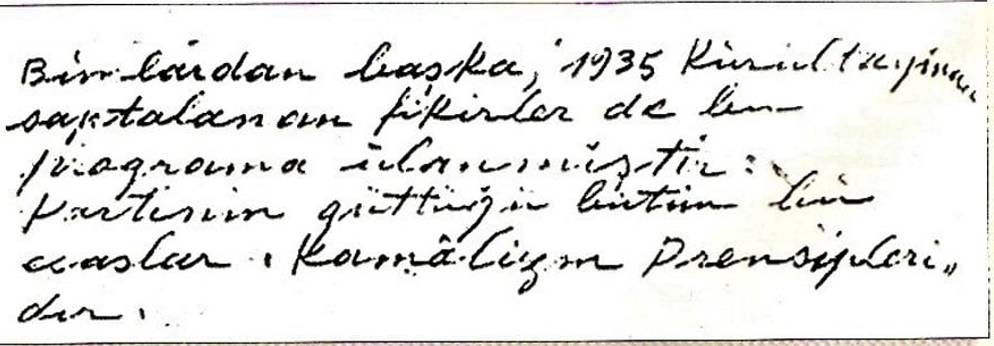 Bunlardan başka, 1935 Kurultayınca
saptalanan fikirler de bu
programa ulanmıştır:
Partinin güttüğü bütün bu
esaslar, Kamâlizm Prensipleri„
dir.